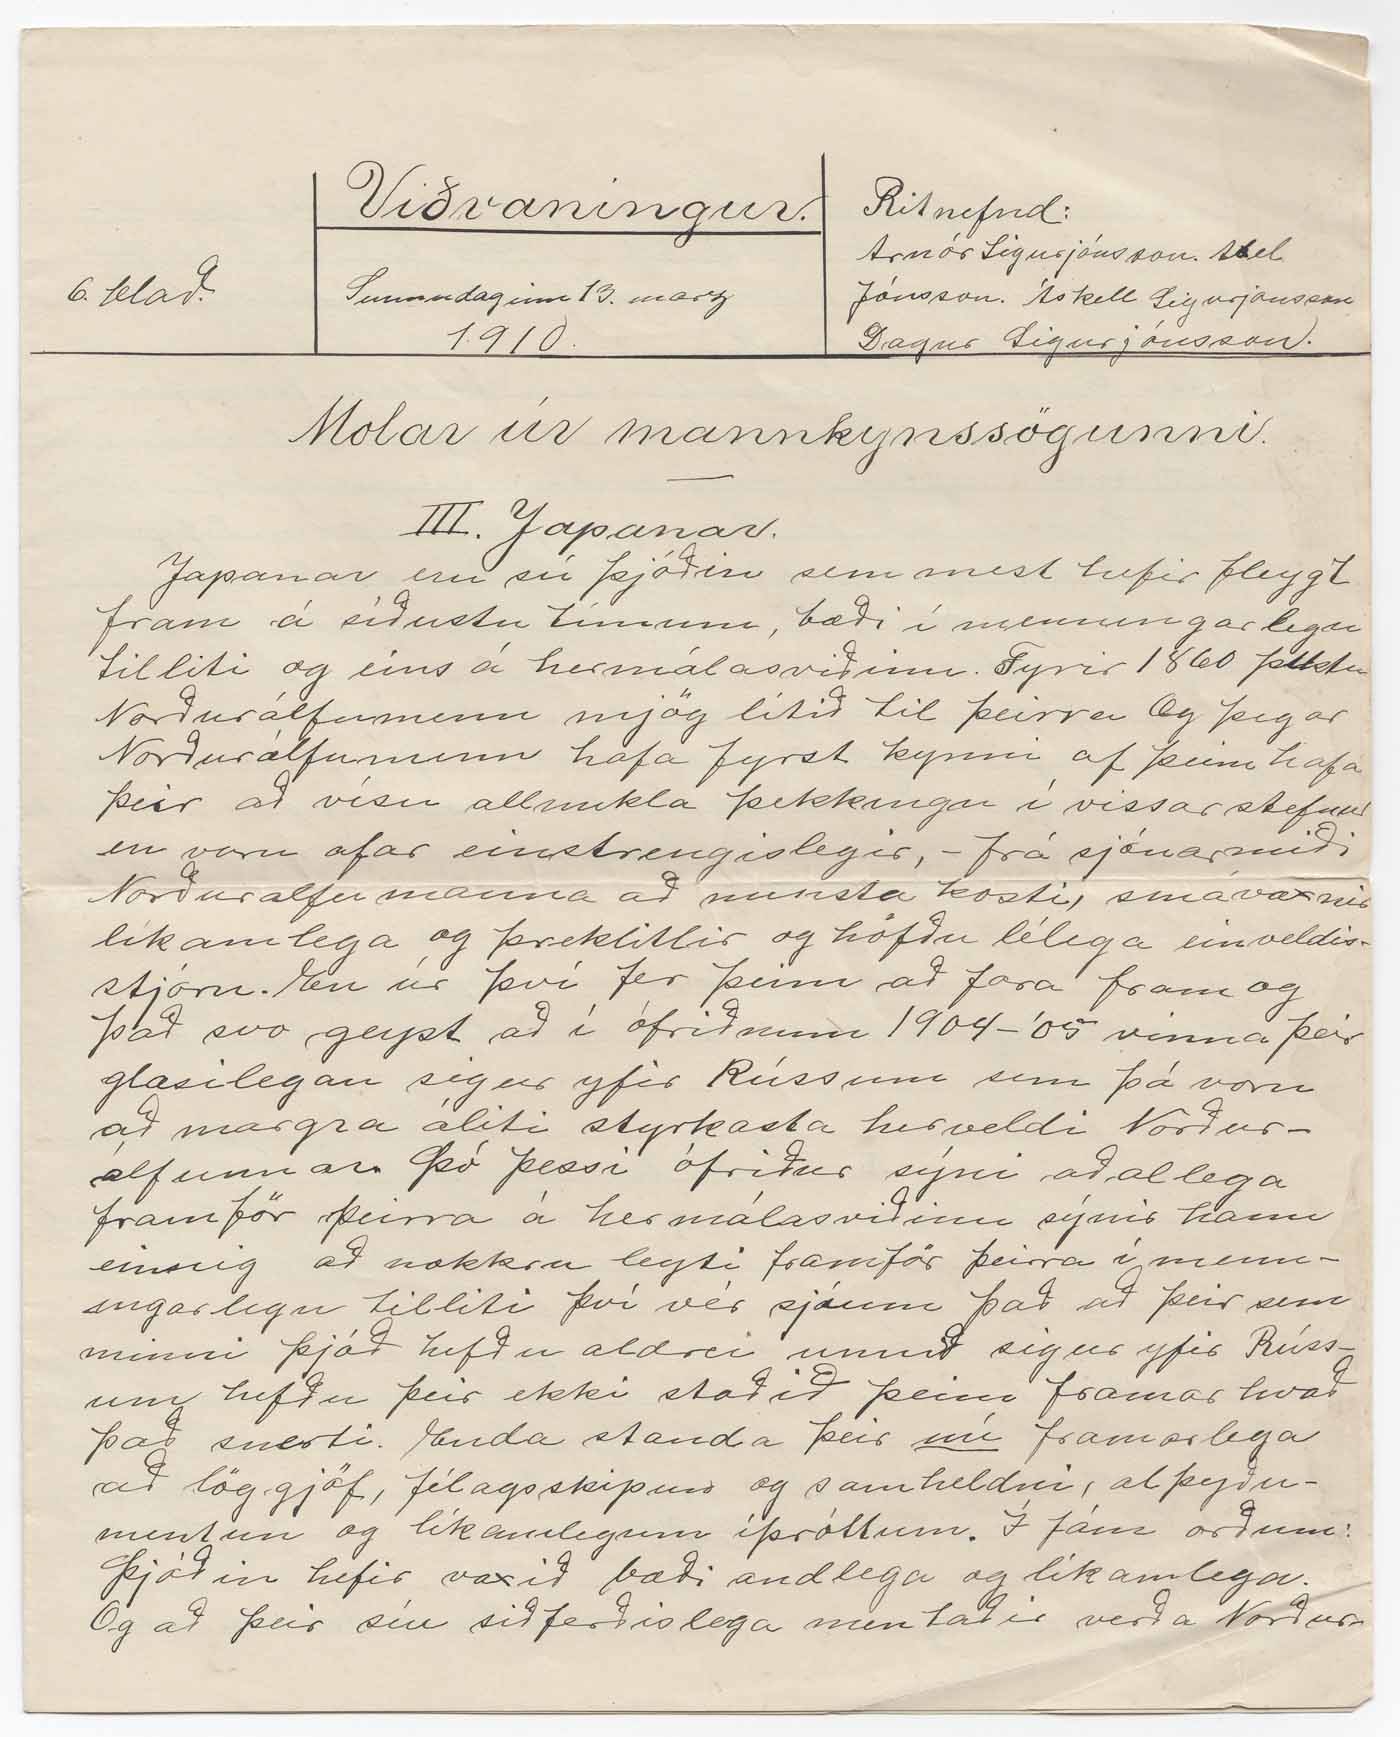 6. blað.
Viðvaningur.
Sunnudaginn 13. marz
1910.
Ritnefnd:
Arnór Sigurjónsson. Axel
Jónsson. Áskell Sigurjónsson
Dagur Sigurjónsson.
Molar úr mannkynssögunni.
III. Japanar.
Japanar eru sú þjóðin sem mest hefir fleygt
fram á síðustu tímum, bæði í menningarlegu
tilliti og eins á hermálasviðinu. Fyrir 1860 þektu
Norðurálfumenn mjög lítið til þeirra Og þegar
Norðurálfumenn hafa fyrst kynni af þeim hafa
þeir að vísu allmikla þekkingu í vissar stefnur
en voru afar einstrengislegir, - frá sjónarmiði
Norðuralfumanna að minsta kosti, smávaxnir
líkamlega og þreklitlir og höfðu lélega einveldis-
stjórn. En úr því fer þeim að fara fram og
það svo geyst að í ófriðnum 1904-'05 vinna þeir
glæsilegan sigur yfir Rússum sem þá voru
að margra áliti styrkasta herveldi Norður-
álfunnar. Þó þessi ófriður sýni aðallega
framför þeirra á hermálasviðinu sýnir hann
einnig að nokkru leyti framför þeirra í menn-
ingarlegu tilliti því vér sjáum það að þeir sem
minni þjóð hefðu aldrei unnið sigur yfir Rúss-
um hefðu þeir ekki staðið þeim framar hvað
það snerti. Enda standa þeir nú framarlega
að löggjöf, félagsskipun og samheldni, alþyðu-
mentun og líkamlegum íþróttum. Í fám orðum:
Þjóðin hefir vaxið bæði andlega og líkamlega.
Og að þeir séu siðferðislega mentaðir verða Norður-